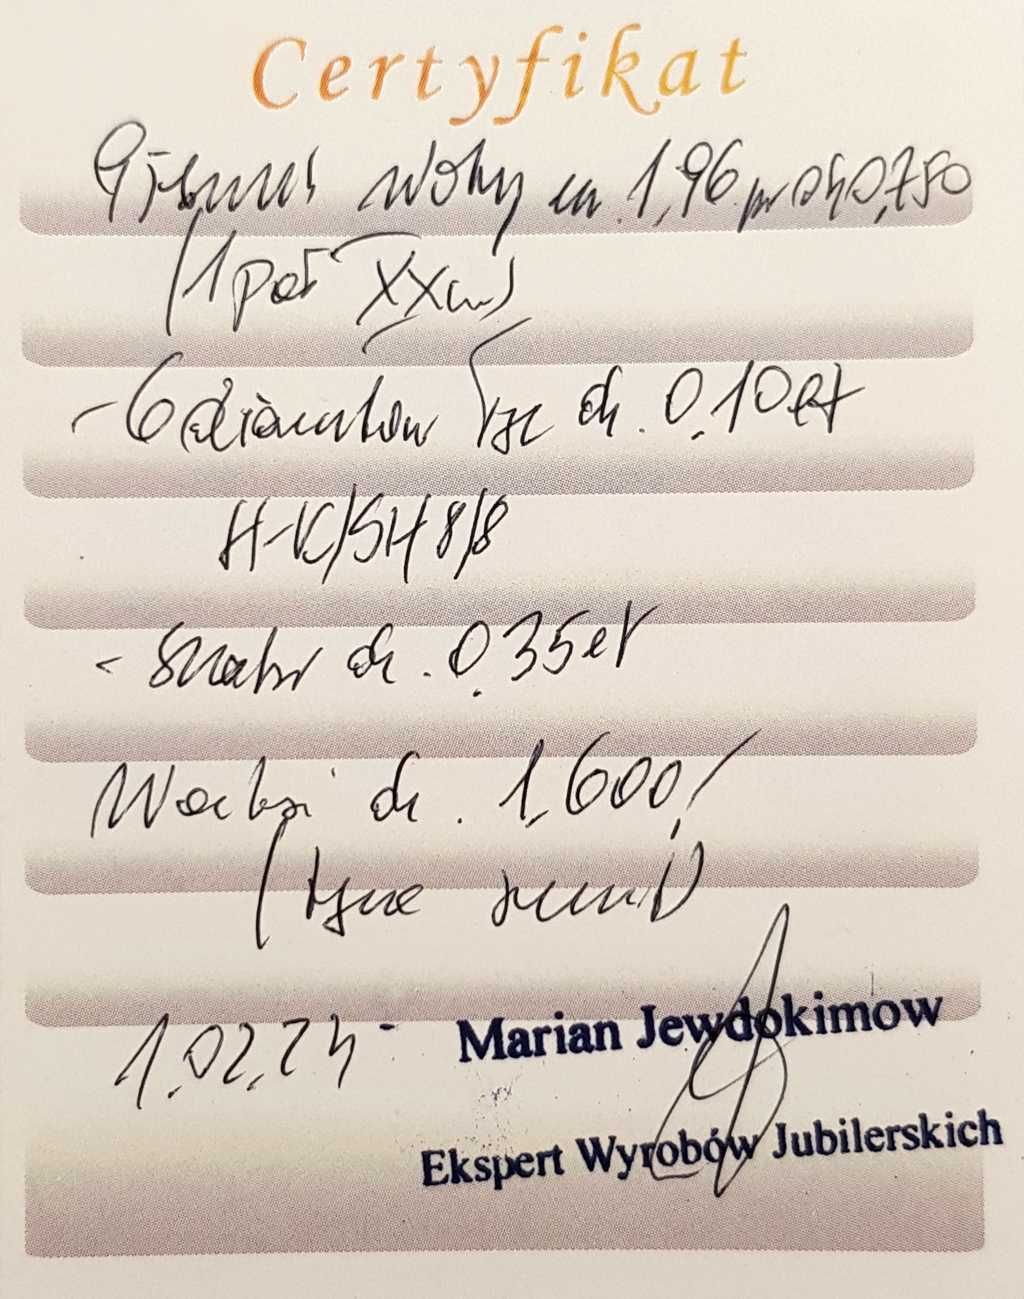 Certyfikat
złoty m. 1,96 pr 0,750
(1 poł XX w)
- 6 diamentów ok. 0,10 ct
H-K/SI 8/8
- szafir ok. 0,35 ct
Wartość ok. 1.600,-
1.02.24 -
Marian Jewdokimow
Ekspert Wyrobów Jubilerskich